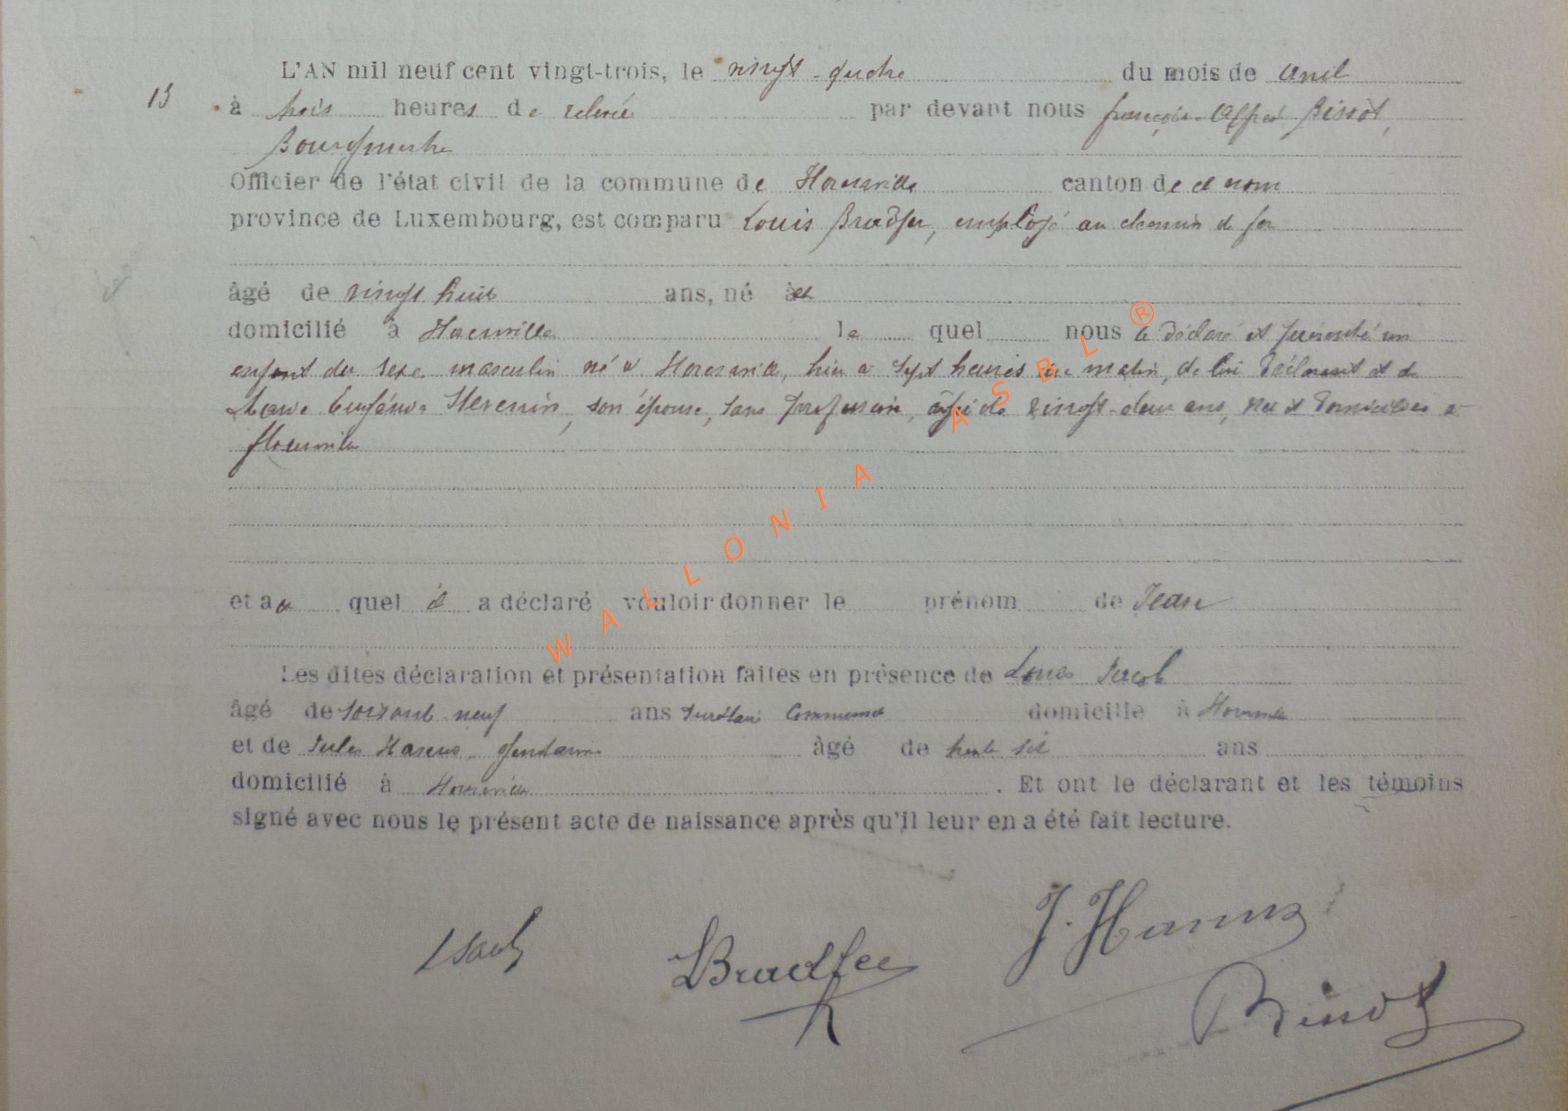 L'AN mil neuf cent vingt-trois, le vingt-quatre du mois de avril
13
à trois heures de relevée par devant nous françois Alfred Bissot,
Bourgmestre
Officier de l'état civil de la commune de canton de ce nom
province de Luxembourg, est comparu Louis Bradfer, employé au chemin de fer
âgé de vingt huit ans, né à et
domicilié à le quel nous a déclaré et présenté un
enfant du sexe masculin né à hier à sept heures du matin, de lui déclarant et de
Marie son épouse, sans profession, âgée de vingt-deux ans, née et domiciliée à
et au quel il a déclaré vouloir donner le prénom de Jean
Les dites déclaration et présentation faites en présence de Louis Jacob
âgé de soixante neuf ans secrétaire communal domicilié à
et de Jules gendarme âgé de trente six ans
domicilié à . Et ont le déclarant et les témoins
signé avec nous le présent acte de naissance après qu'il leur en a été fait lecture.
WALLONIA ASBL ®
LBradfer